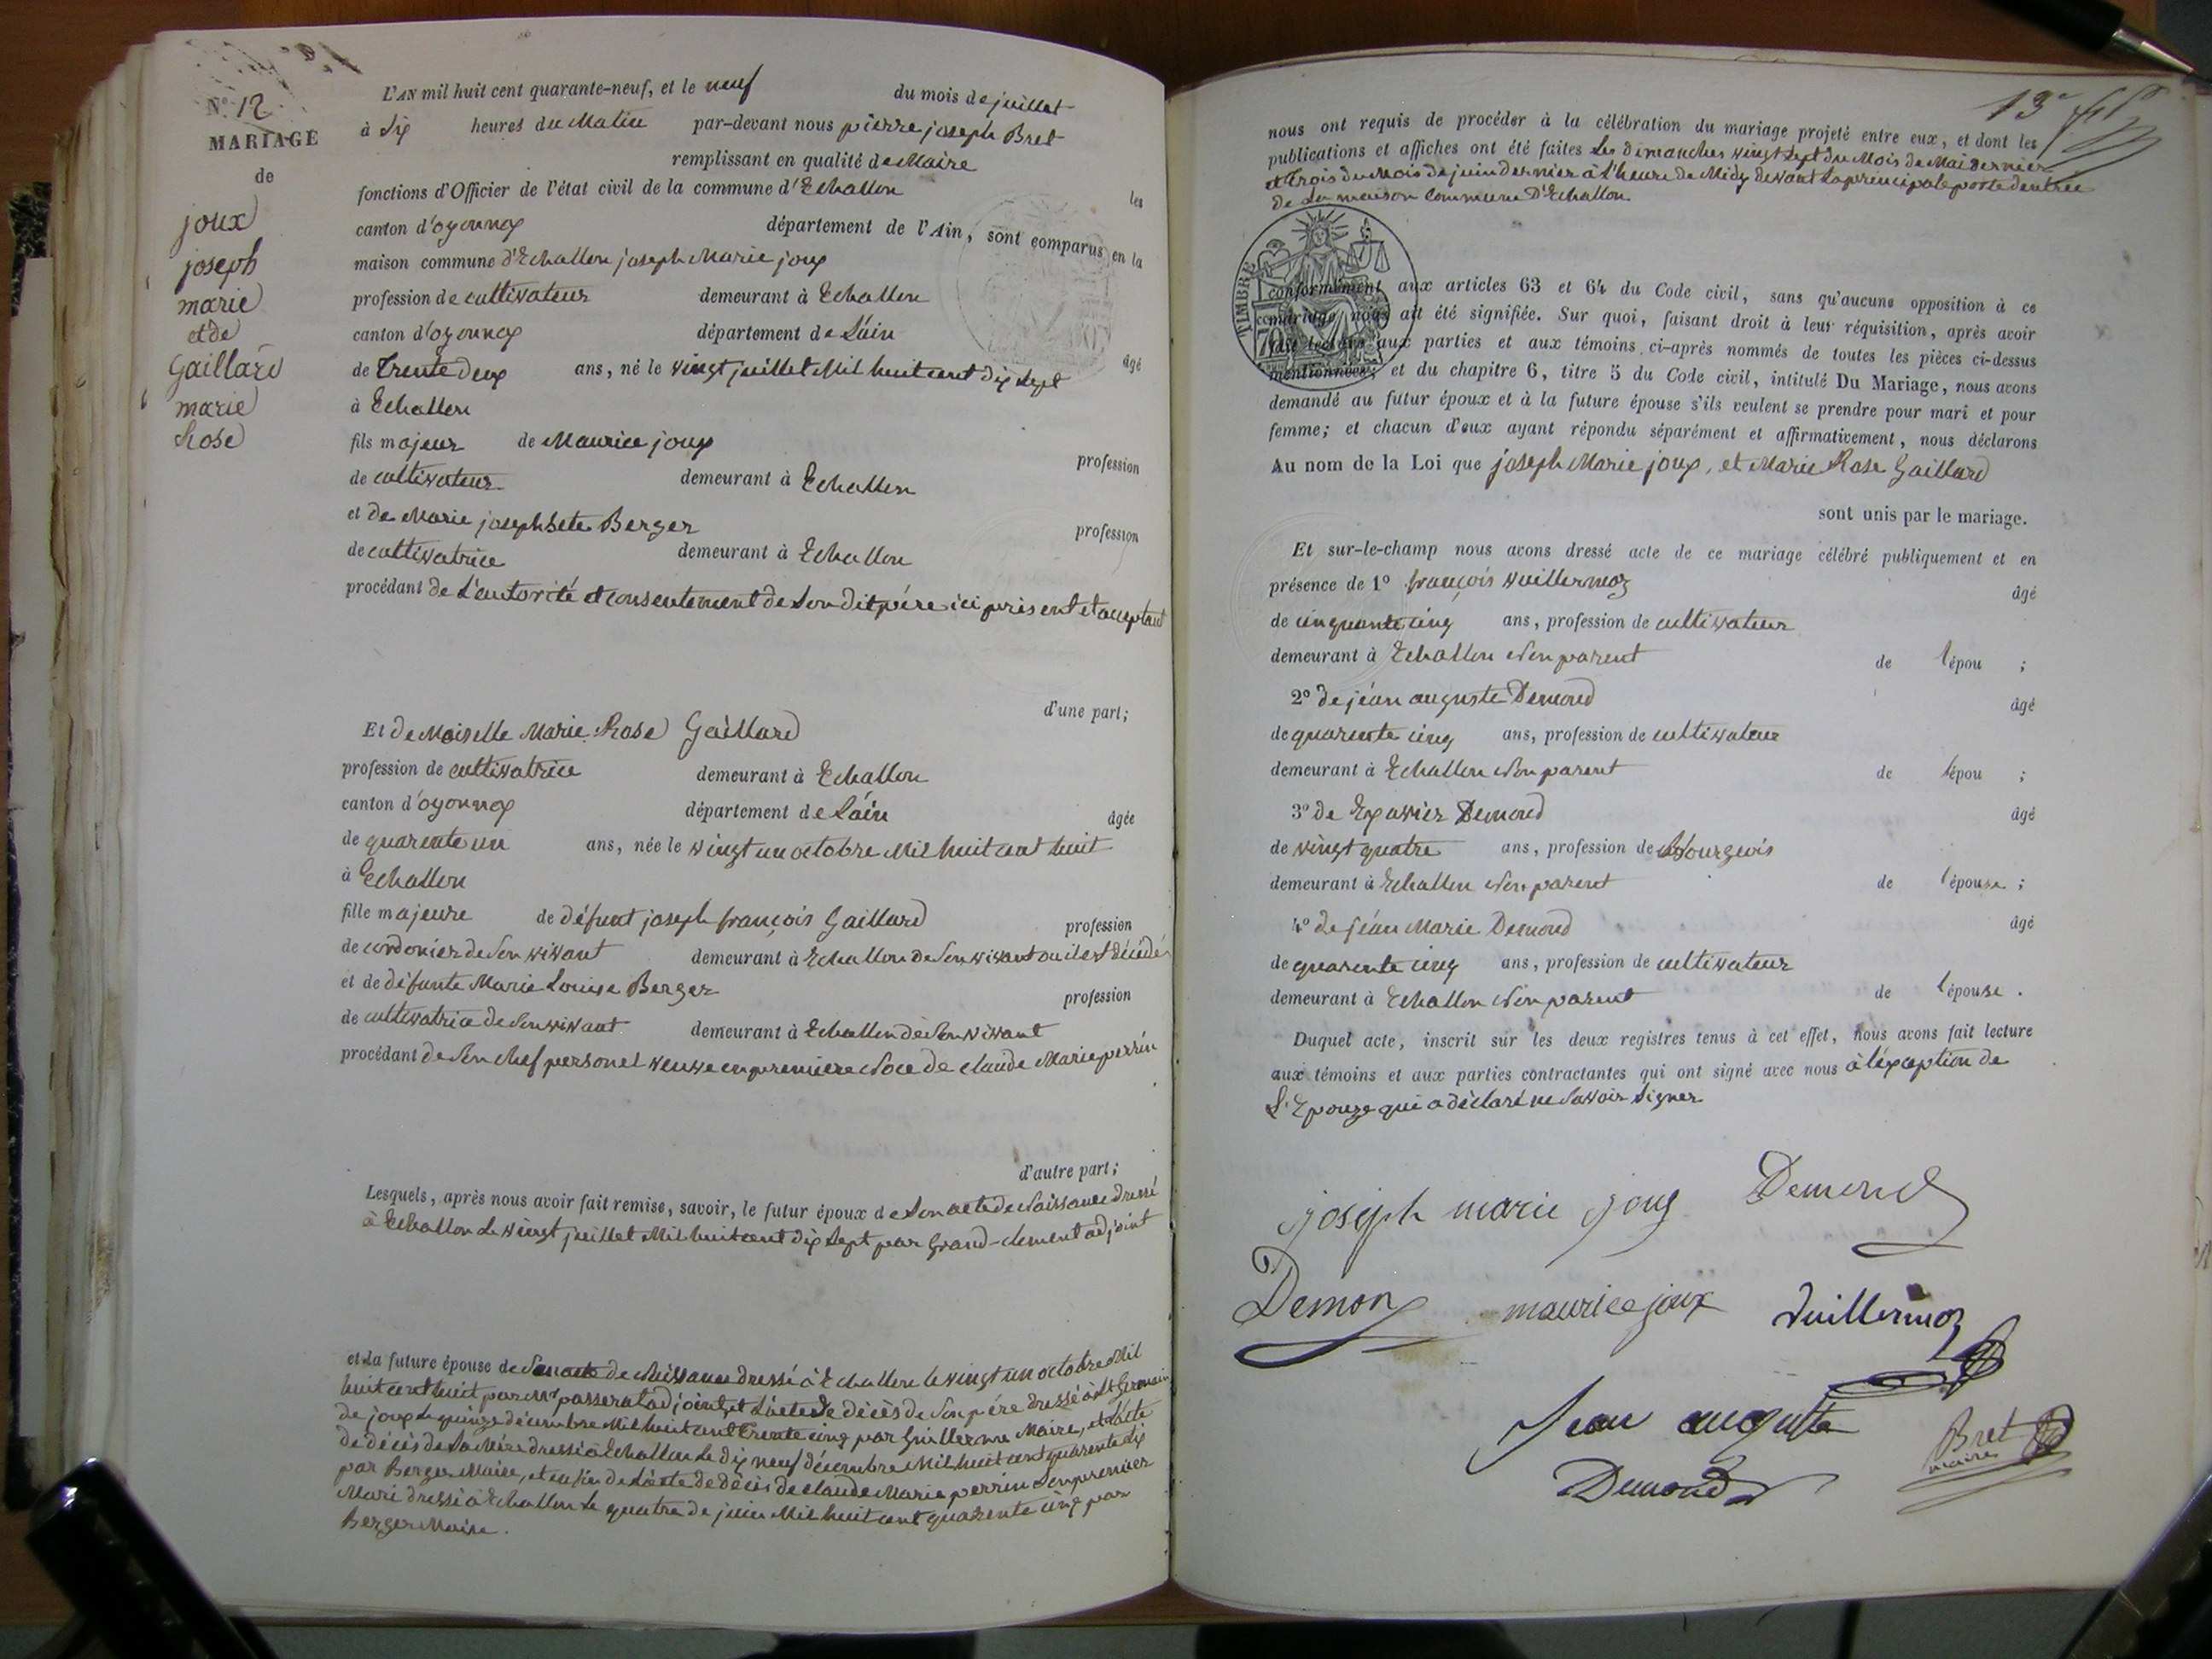 N.º 12
MARIAGE
de
joux
joseph
marie
et de
Gaillard
marie
Rose
L'AN mil huit cent quarante-neuf, et le neuf du mois de juillet
à Six heures du Matin par-devant nous pierre joseph Bret
remplissant en qualité de Maire les
fonctions d'Officier de l'état civil de la commune d'Echallon
canton d'oyonnax département de l'Ain, sont comparus en la
maison commune d'Echallon joseph Marie joux
profession de cultivateur demeurant à Echallon
canton d'oyonnax département de L'áin âgé
de Trente deux ans, né le vingt juillet Mil huit cent dix Sept
à Echallon
fils majeur de Maurice joux profession
de cultivateur demeurant à Echallon
et de Marie josephete Berger profession
de cultivatrice demeurant à Echallon
procédant de L'autorité et consentement de Son dit père ici présent et acceptant
d'une part;
Et deMoiselle Marie Rose Gaillard
profession de cultivatrice demeurant à Echallon
canton d'oyonnax département de L'áin âgée
de quarente un ans, née le vingt un octobre Mil huit cent huit
à Echallon
fille majeure de défunt joseph françois Gaillard profession
de cordonier de Son vivant demeurant à Echallon de Son vivant ou il est décédé
et de défunte Marie Louise Berger profession
de cultivatrice de Son vivant demeurant à Echallon de Son vivant
procédant de Son chef personel veuve en premiere Noce de claude Marie perrin
d'autre part;
Lesquels, après nous avoir fait remise, savoir, le futur époux de Son acte de Naissance dressé
à Echallon Le vingt juillet Mil huit cent dix Sept par Grand-clement adjoint
et La future épouse de Son acte de Naissance dressé à Echallon le vingt un octobre Mil
huit cent huit par Mr passerat adjoint, et L'acte de décès de Son père dressé à St Germain
de joux Le quinze décembre Mil huit cent Trente cinq par Guillerme Maire, et L'acte
de décès de Sa Mère dressé à Echallon Le dix neuf décembre Mil huit cent quarente Six
par Berger Maire, et enfin de L'acte de décès de claude Marie perrin Son premier
Mari dressé à Echallon Le quatre de juin Mil huit cent quarente cinq par
Berger Maire.
13e
nous ont requis de procéder à la célébration du mariage projeté entre eux, et dont les
publications et affiches ont été faites Les dimanches vingt Sept du Mois de Mai dernier
et Trois du Mois de juin dernier à l'heure de Midy devant La principale porte d'entrée
de La maison commune D'Echallon
TIMBRE
70
conformément aux articles 63 et 64 du Code civil, sans qu'aucune opposition à ce
mariage nous ait été signifiée. Sur quoi, faisant droit à leur réquisition, après avoir
fait lecture aux parties et aux témoins ci-après nommés de toutes les pièces ci-dessus
mentionnées; et du chapitre 6, titre 5 du Code civil, intitulé Du Mariage, nous avons
demandé au futur époux et à la future épouse s'ils veulent se prendre pour mari et pour
femme; et chacun d'eux ayant répondu séparément et affirmativement, nous déclarons
Au nom de la Loi que joseph Marie joux, et Marie Rose Gaillard
sont unis par le mariage.
Et sur-le-champ nous avons dressé acte de ce mariage célébré publiquement et en
présence de 1º françois Vuillermoz âgé
de cinquante cinq ans, profession de cultivateur
demeurant à Echallon Non parent de l'épou ;
2º de jéan auguste Demond âgé
de quarente cinq ans, profession de cultivateur
demeurant à Echallon Non parent de l'épou ;
3º de Exavier Demond âgé
de vingt quatre ans, profession de Bourgeois
demeurant à Echallon Non parent de l'épouse ;
4º de jéan Marie Demond âgé
de quarente cinq ans, profession de cultivateur
demeurant à Echallon Non parent de l'épouse .
Duquel acte, inscrit sur les deux registres tenus à cet effet, nous avons fait lecture
aux témoins et aux parties contractantes qui ont signé avec nous à l'éxception de
L'Epouze qui a déclaré ne Savoir Signer
joseph marie joux Demond
Demon maurice joux Vuillermoz
Jean auguste Bret
maire
Demond